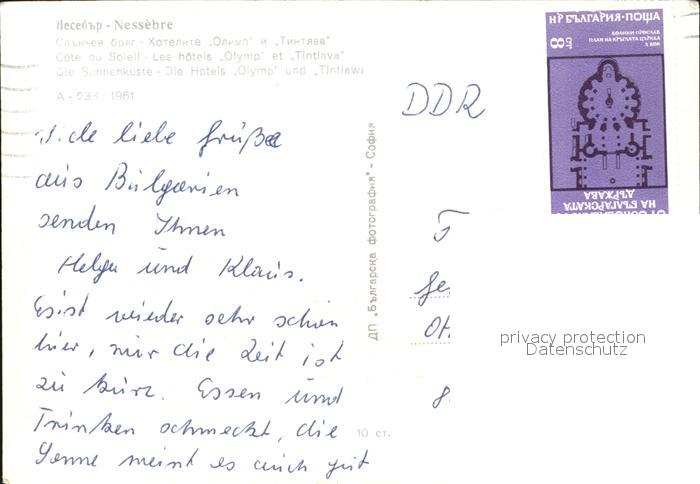 Несебър - Nessèbre
Слънчев бряг - Хотелите „Олимп“ и „Тинтява“
Côte du Soleil - Les hôtels „Olymp“ et „Tintiava“
Die Sunnenküste - Die Hotels „Olymp“ und „Tintiawa
A - 933 / 1961
liebe Grüße
aus Bulgarien
senden Ihnen
Helga und Klaus.
Es ist wieder sehr schön
hier, nur die Zeit ist
zu kurz. Essen und
Trinken schmeckt, die
Sonne meint es auch gut
ДП „Българска фотография“ - София
10 ст.
DDR
НР БЪЛГАРИЯ·ПОЩА
ВЕЛИКИ ПРЕСЛАВ
ПЛАН НА КРЪГЛАТА ЦЪРКВА
X ВЕК
8 СТ
НА БЪЛГАРСКАТА
ДЪРЖАВА
privacy protection
Datenschutz